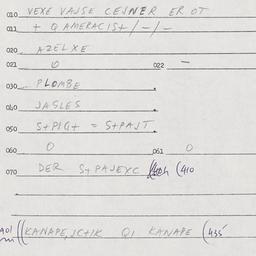 010 VEXE VAJSE CEJNER ER OT
011 + QAMERACIS+/-/-
020 AZELXE
021 O 022 -
030 PLOMBE
040 JASLES
050 S+PIG+ = S+PAJT
060 O 061 O
070 DER S+PAJEXC (410
((KANAPE,JC+IK QI KANAPE (435